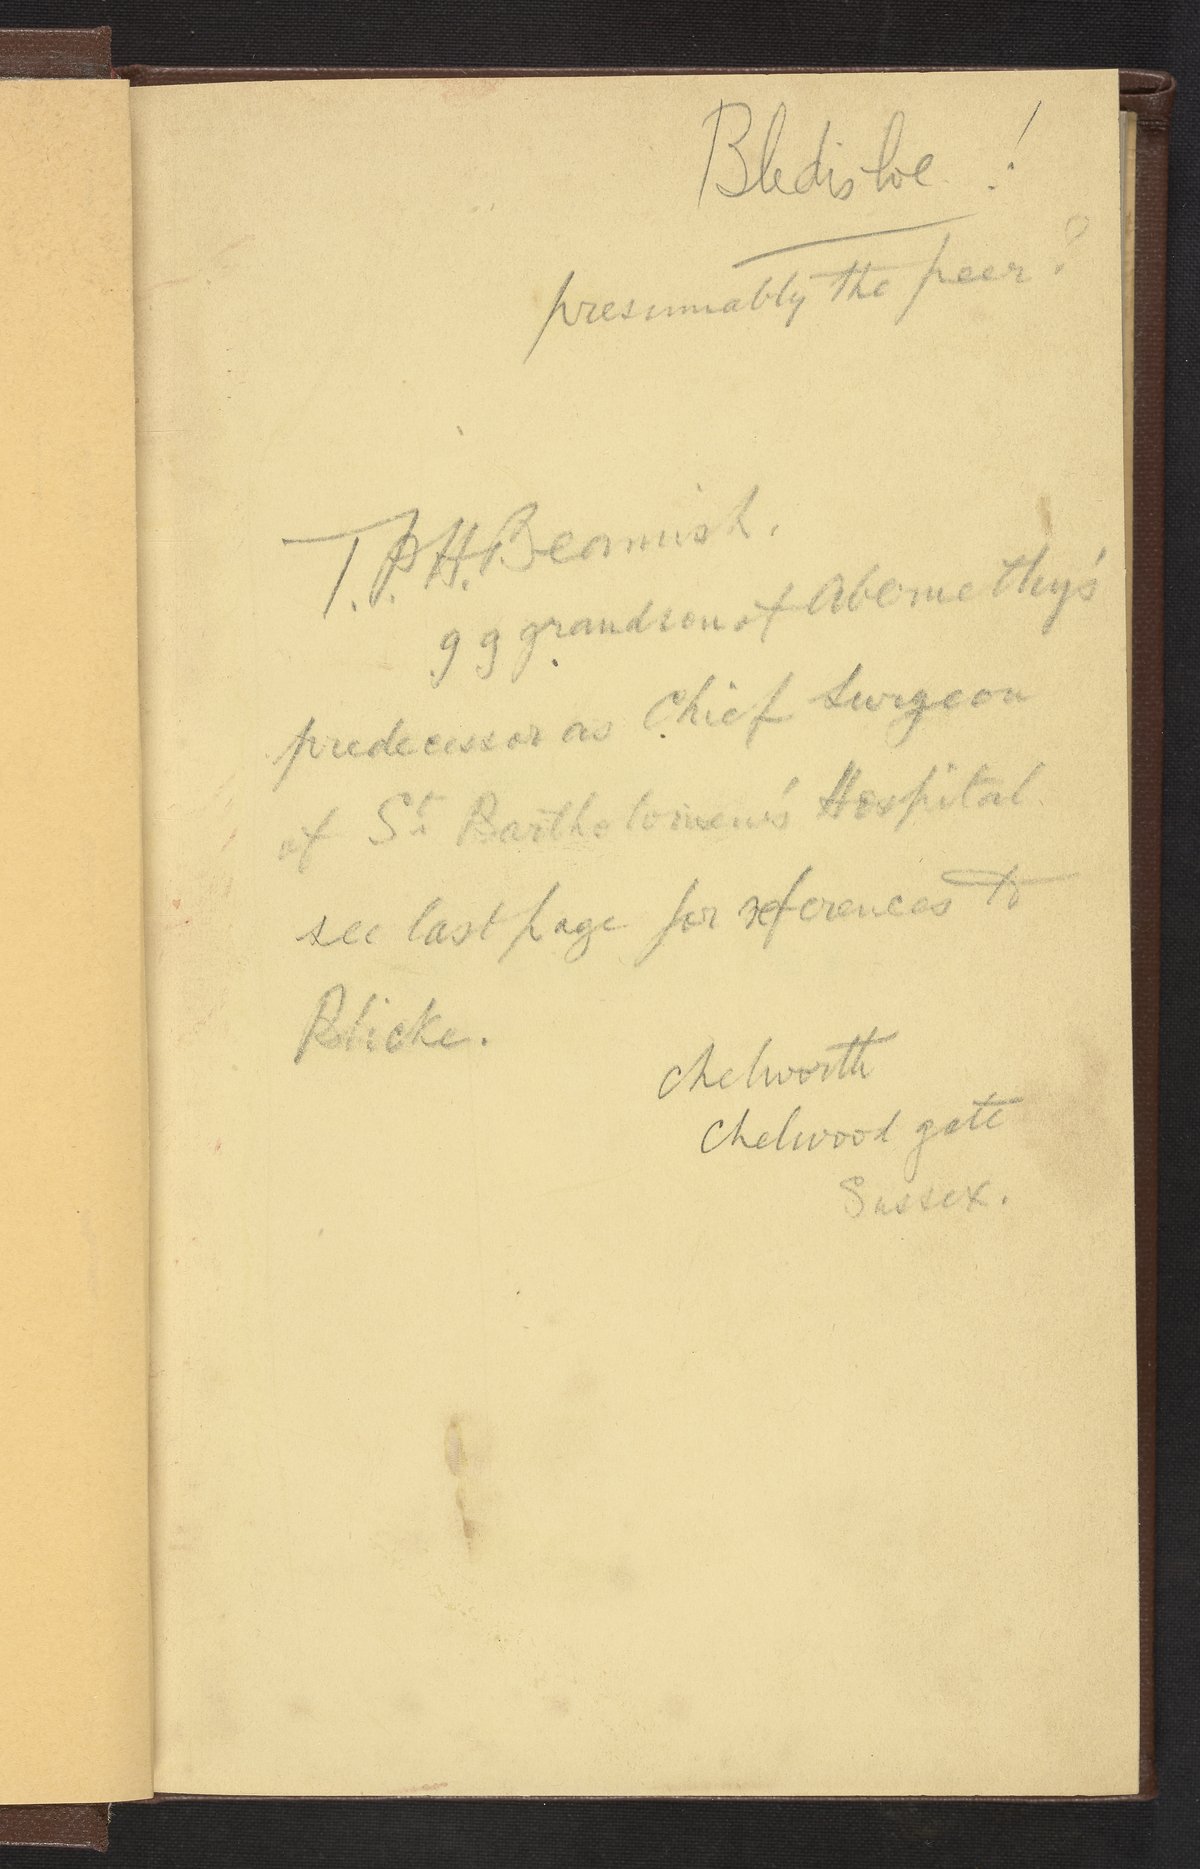 Bledisloe !
presumably the peer ?
T.P.H. Beamish.
g g grandson of Abernethy's
predecessor as Chief Surgeon
of St. Bartholomew's Hospital
see last page for references to
Blicke.
Chelworth
Chelwood gate
Sussex.